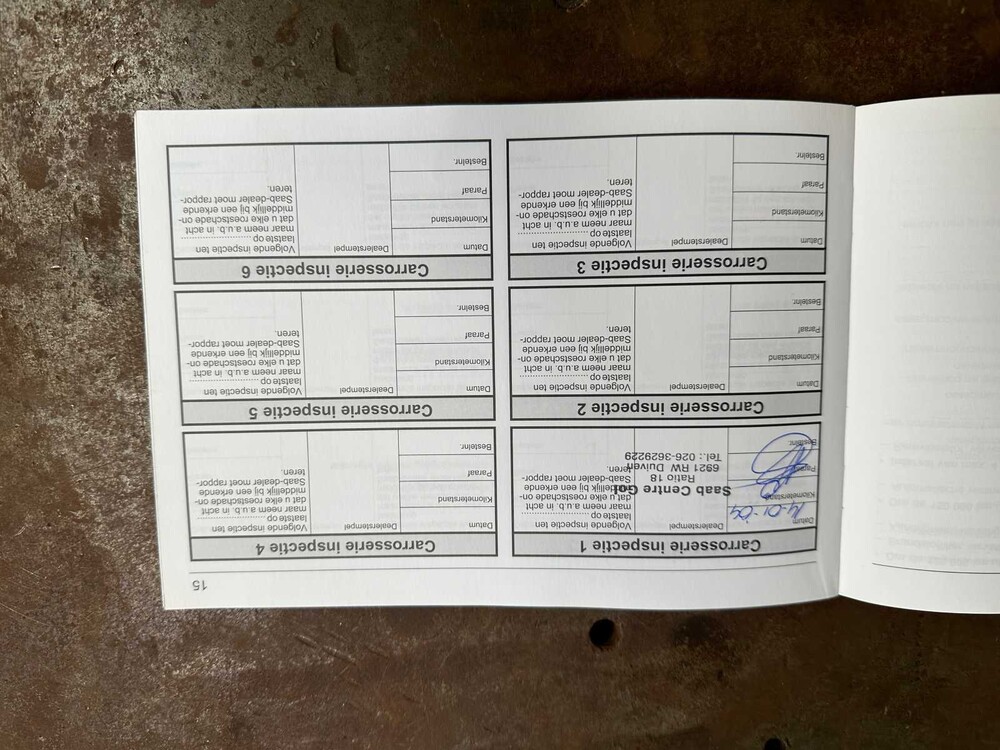 15
Carrosserie inspectie 1
Datum
14-01-04
Kilometerstand
Paraaf
Bestelnr.
Dealerstempel
Saab Centre
Ratio 18
6921 RW Duiven
Tel.: 026-3629229
Volgende inspectie ten
laatste op
maar neem a.u.b. in acht
dat u elke roestschade on-
middellijk bij een erkende
Saab-dealer moet rappor-
teren.
Carrosserie inspectie 2
Datum
Kilometerstand
Paraaf
Bestelnr.
Dealerstempel
Volgende inspectie ten
laatste op
maar neem a.u.b. in acht
dat u elke roestschade on-
middellijk bij een erkende
Saab-dealer moet rappor-
teren.
Carrosserie inspectie 3
Datum
Kilometerstand
Paraaf
Bestelnr.
Dealerstempel
Volgende inspectie ten
laatste op
maar neem a.u.b. in acht
dat u elke roestschade on-
middellijk bij een erkende
Saab-dealer moet rappor-
teren.
Carrosserie inspectie 4
Datum
Kilometerstand
Paraaf
Bestelnr.
Dealerstempel
Volgende inspectie ten
laatste op
maar neem a.u.b. in acht
dat u elke roestschade on-
middellijk bij een erkende
Saab-dealer moet rappor-
teren.
Carrosserie inspectie 5
Datum
Kilometerstand
Paraaf
Bestelnr.
Dealerstempel
Volgende inspectie ten
laatste op
maar neem a.u.b. in acht
dat u elke roestschade on-
middellijk bij een erkende
Saab-dealer moet rappor-
teren.
Carrosserie inspectie 6
Datum
Kilometerstand
Paraaf
Bestelnr.
Dealerstempel
Volgende inspectie ten
laatste op
maar neem a.u.b. in acht
dat u elke roestschade on-
middellijk bij een erkende
Saab-dealer moet rappor-
teren.